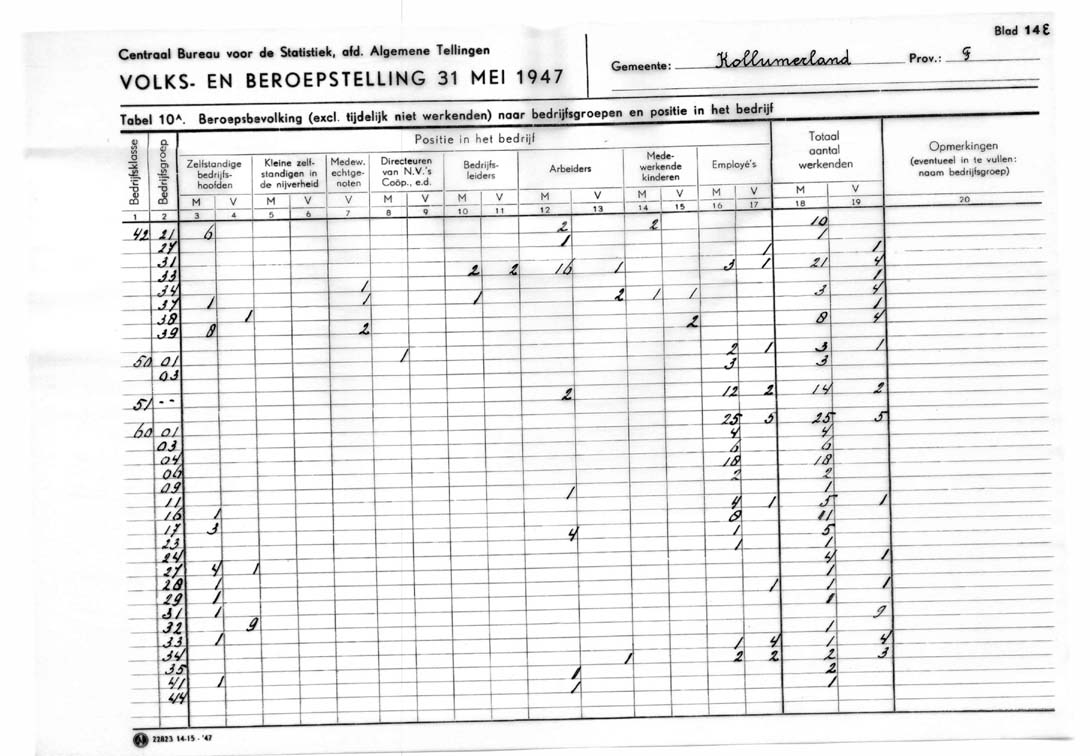 Blad 14E
Centraal Bureau voor de Statistiek, afd. Algemene Tellingen
VOLKS- EN BEROEPSTELLING 31 MEI 1947
Gemeente: Kollumerland Prov.: F
Tabel 10A. Beroepsbevolking (excl. tijdelijk niet werkenden) naar bedrijfsgroepen en positie in het bedrijf
Bedrijfsklasse
Bedrijfsgroep
Positie in het bedrijf
Zelfstandige
bedrijfs-
hoofden
Kleine zelf-
standigen in
de nijverheid
Medew.
echtge-
noten
Directeuren
van N.V.'s
Coöp., e.d.
Bedrijfs-
leiders
Arbeiders
Mede-
werkende
kinderen
Employé's
Totaal
aantal
werkenden
Opmerkingen
(eventueel in te vullen:
naam bedrijfsgroep)
M V M V V M V M V M V M V M V M V
1 2 3 4 5 6 7 8 9 10 11 12 13 14 15 16 17 18 19 20
42 21 6 2 2 10
27 1 1
31 1 1
33 2 2 16 1 3 1 21 4
34 1 1
37 1 1 1 2 1 1 3 4
38 1 1
39 8 2 2 8 4
50 01 1 2 1 3 1
03 3 3
51 -- 2 12 2 14 2
60 01 25 5 25 5
03 4 4
04 6 6
06 18 18
09 2 2
11 1 1
16 1 4 1 5 1
17 3 8 11
23 4 1 5
24 1 1
27 4 1 4 1
28 1 1
29 1 1 1 1
31 1 1
32 9 9
33 1 1
34 1 4 1 4
35 1 2 2 2 3
41 1 1 2
44 1 1
22823 14-15 - '47